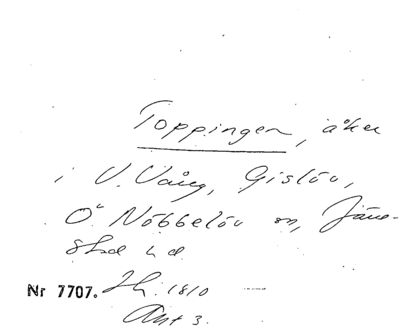 Toppingen, åker
i V. Vång, Gislöv,
Ö Nöbbelöv sn, Järre-
stad hd
Nr 7707. Sk. 1810
Akt 3.